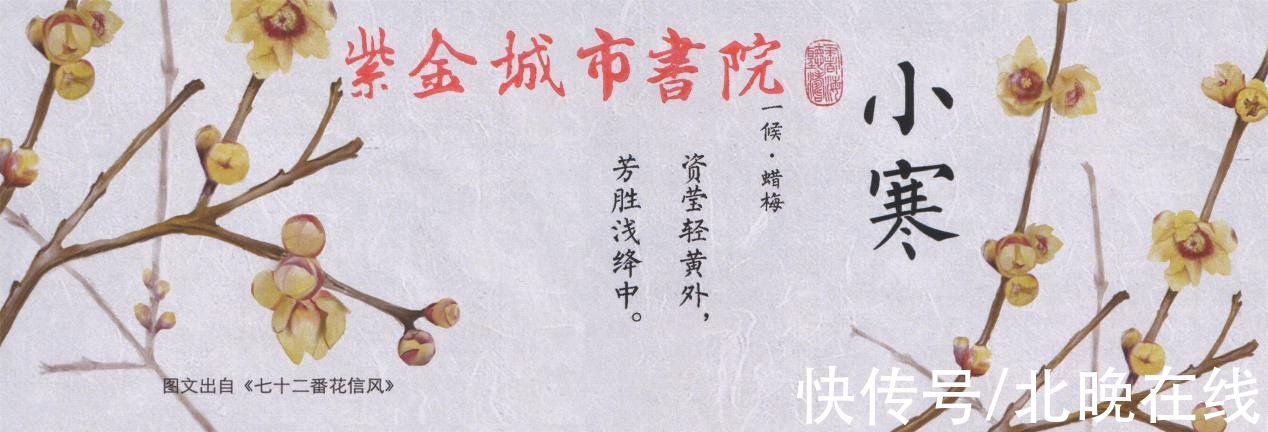 紫金城市書院
小寒
一候·蜡梅
资莹轻黄外，
芳胜浅绛中。
图文出自《七十二番花信风》
快传号/北晚在线